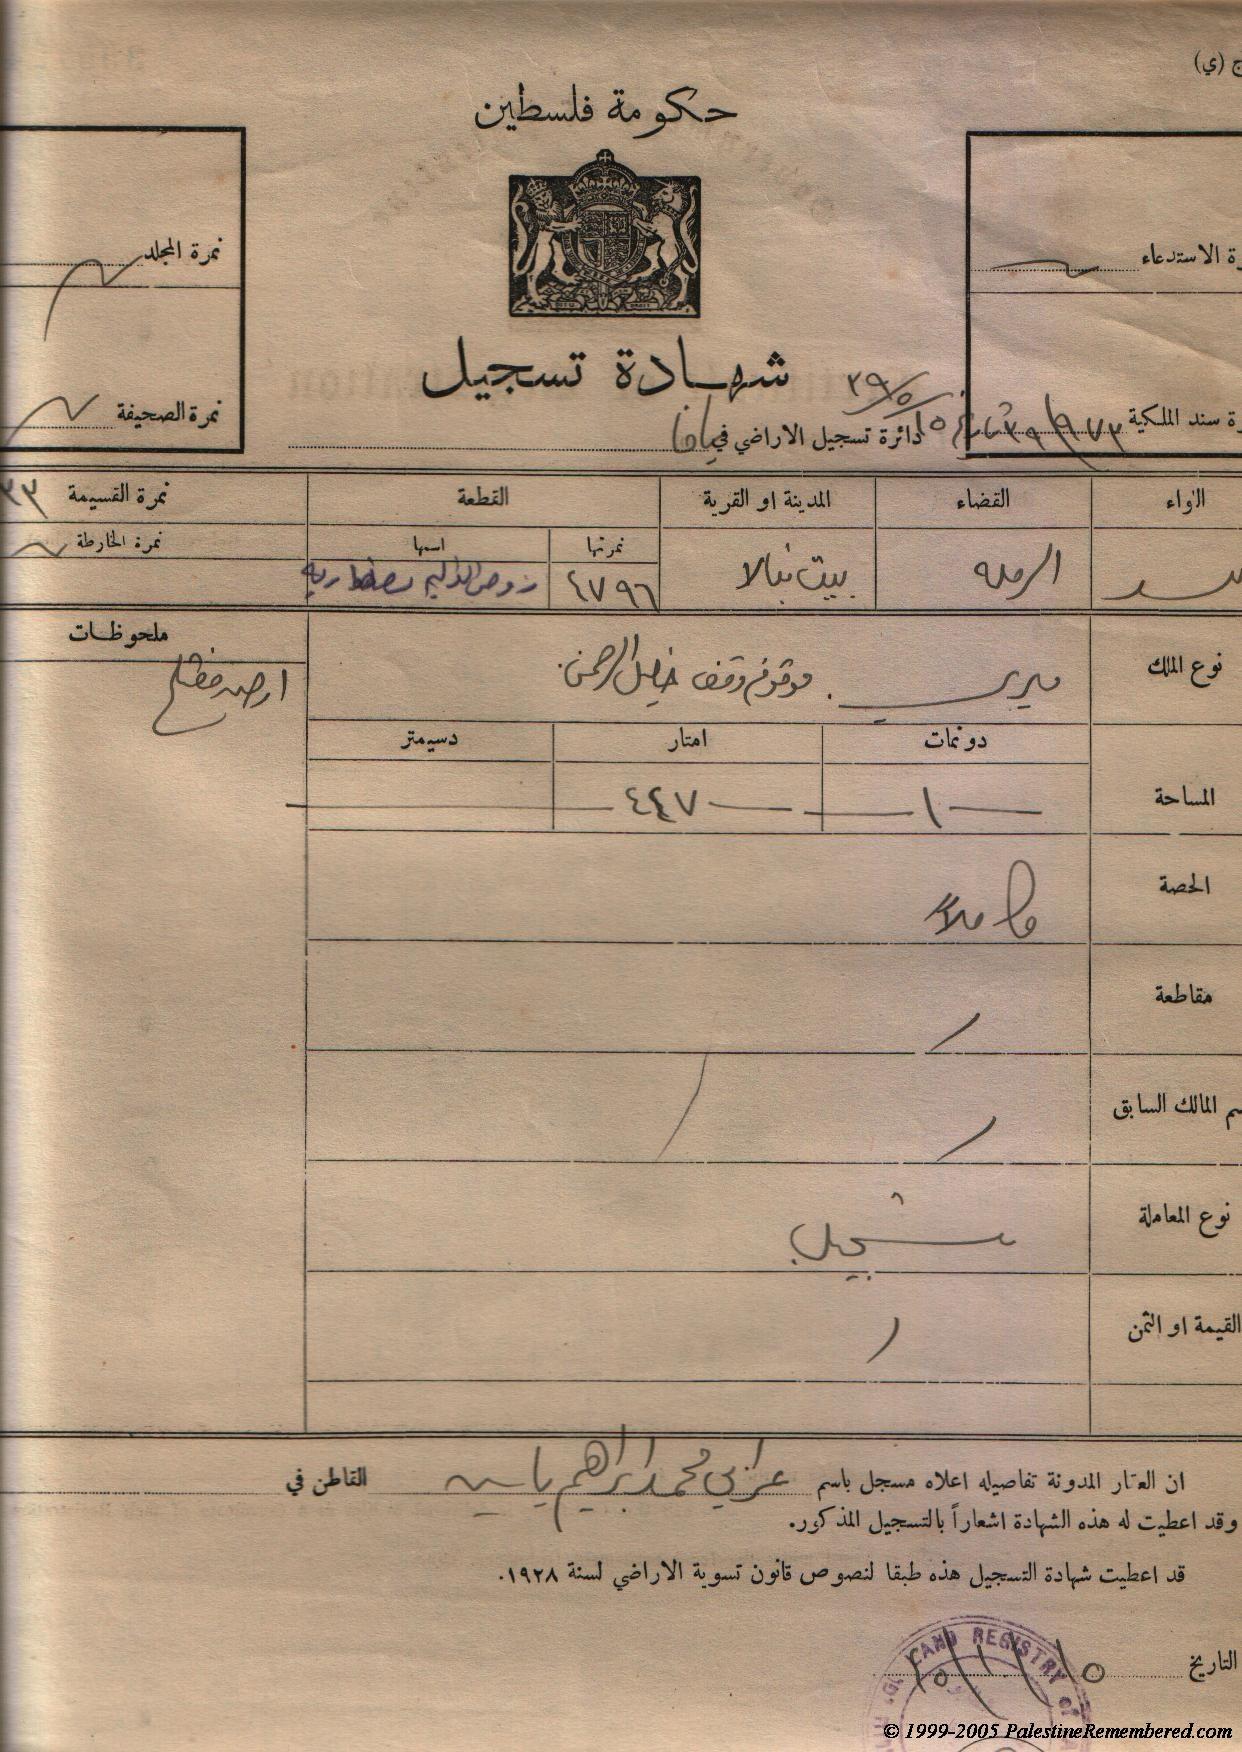 ج (ي)
حكومة فلسطين
رة الاستدعاء
نمرة المجلد
شهادة تسجيل
رة سند الملكية
نمرة الصحيفة
دائرة تسجيل الاراضي في يافا
اللواء القضاء المدينة او القرية القطعة نمرة القسيمة ٣٣
نمرتها اسمها نمرة الخارطة
الرمله بيت نبالا ٤٧٩٦
نوع الملك ميري موقوف وقف خليل الرحمن
ملحوظات
دونمات امتار دسيمتر
المساحة ١ ٤٤٧
الحصة كاملا
مقاطعة
سم المالك السابق
نوع المعاملة تسجيل
القيمة او الثمن
ان العقار المدونة تفاصيله اعلاه مسجل باسم محمد ابراهيم ياسين القاطن في
وقد اعطيت له هذه الشهادة اشعاراً بالتسجيل المذكور.
قد اعطيت شهادة التسجيل هذه طبقا لنصوص قانون تسوية الاراضي لسنة ١٩٢٨.
التاريخ
LAND REGISTRY of
© 1999-2005 PalestineRemembered.com